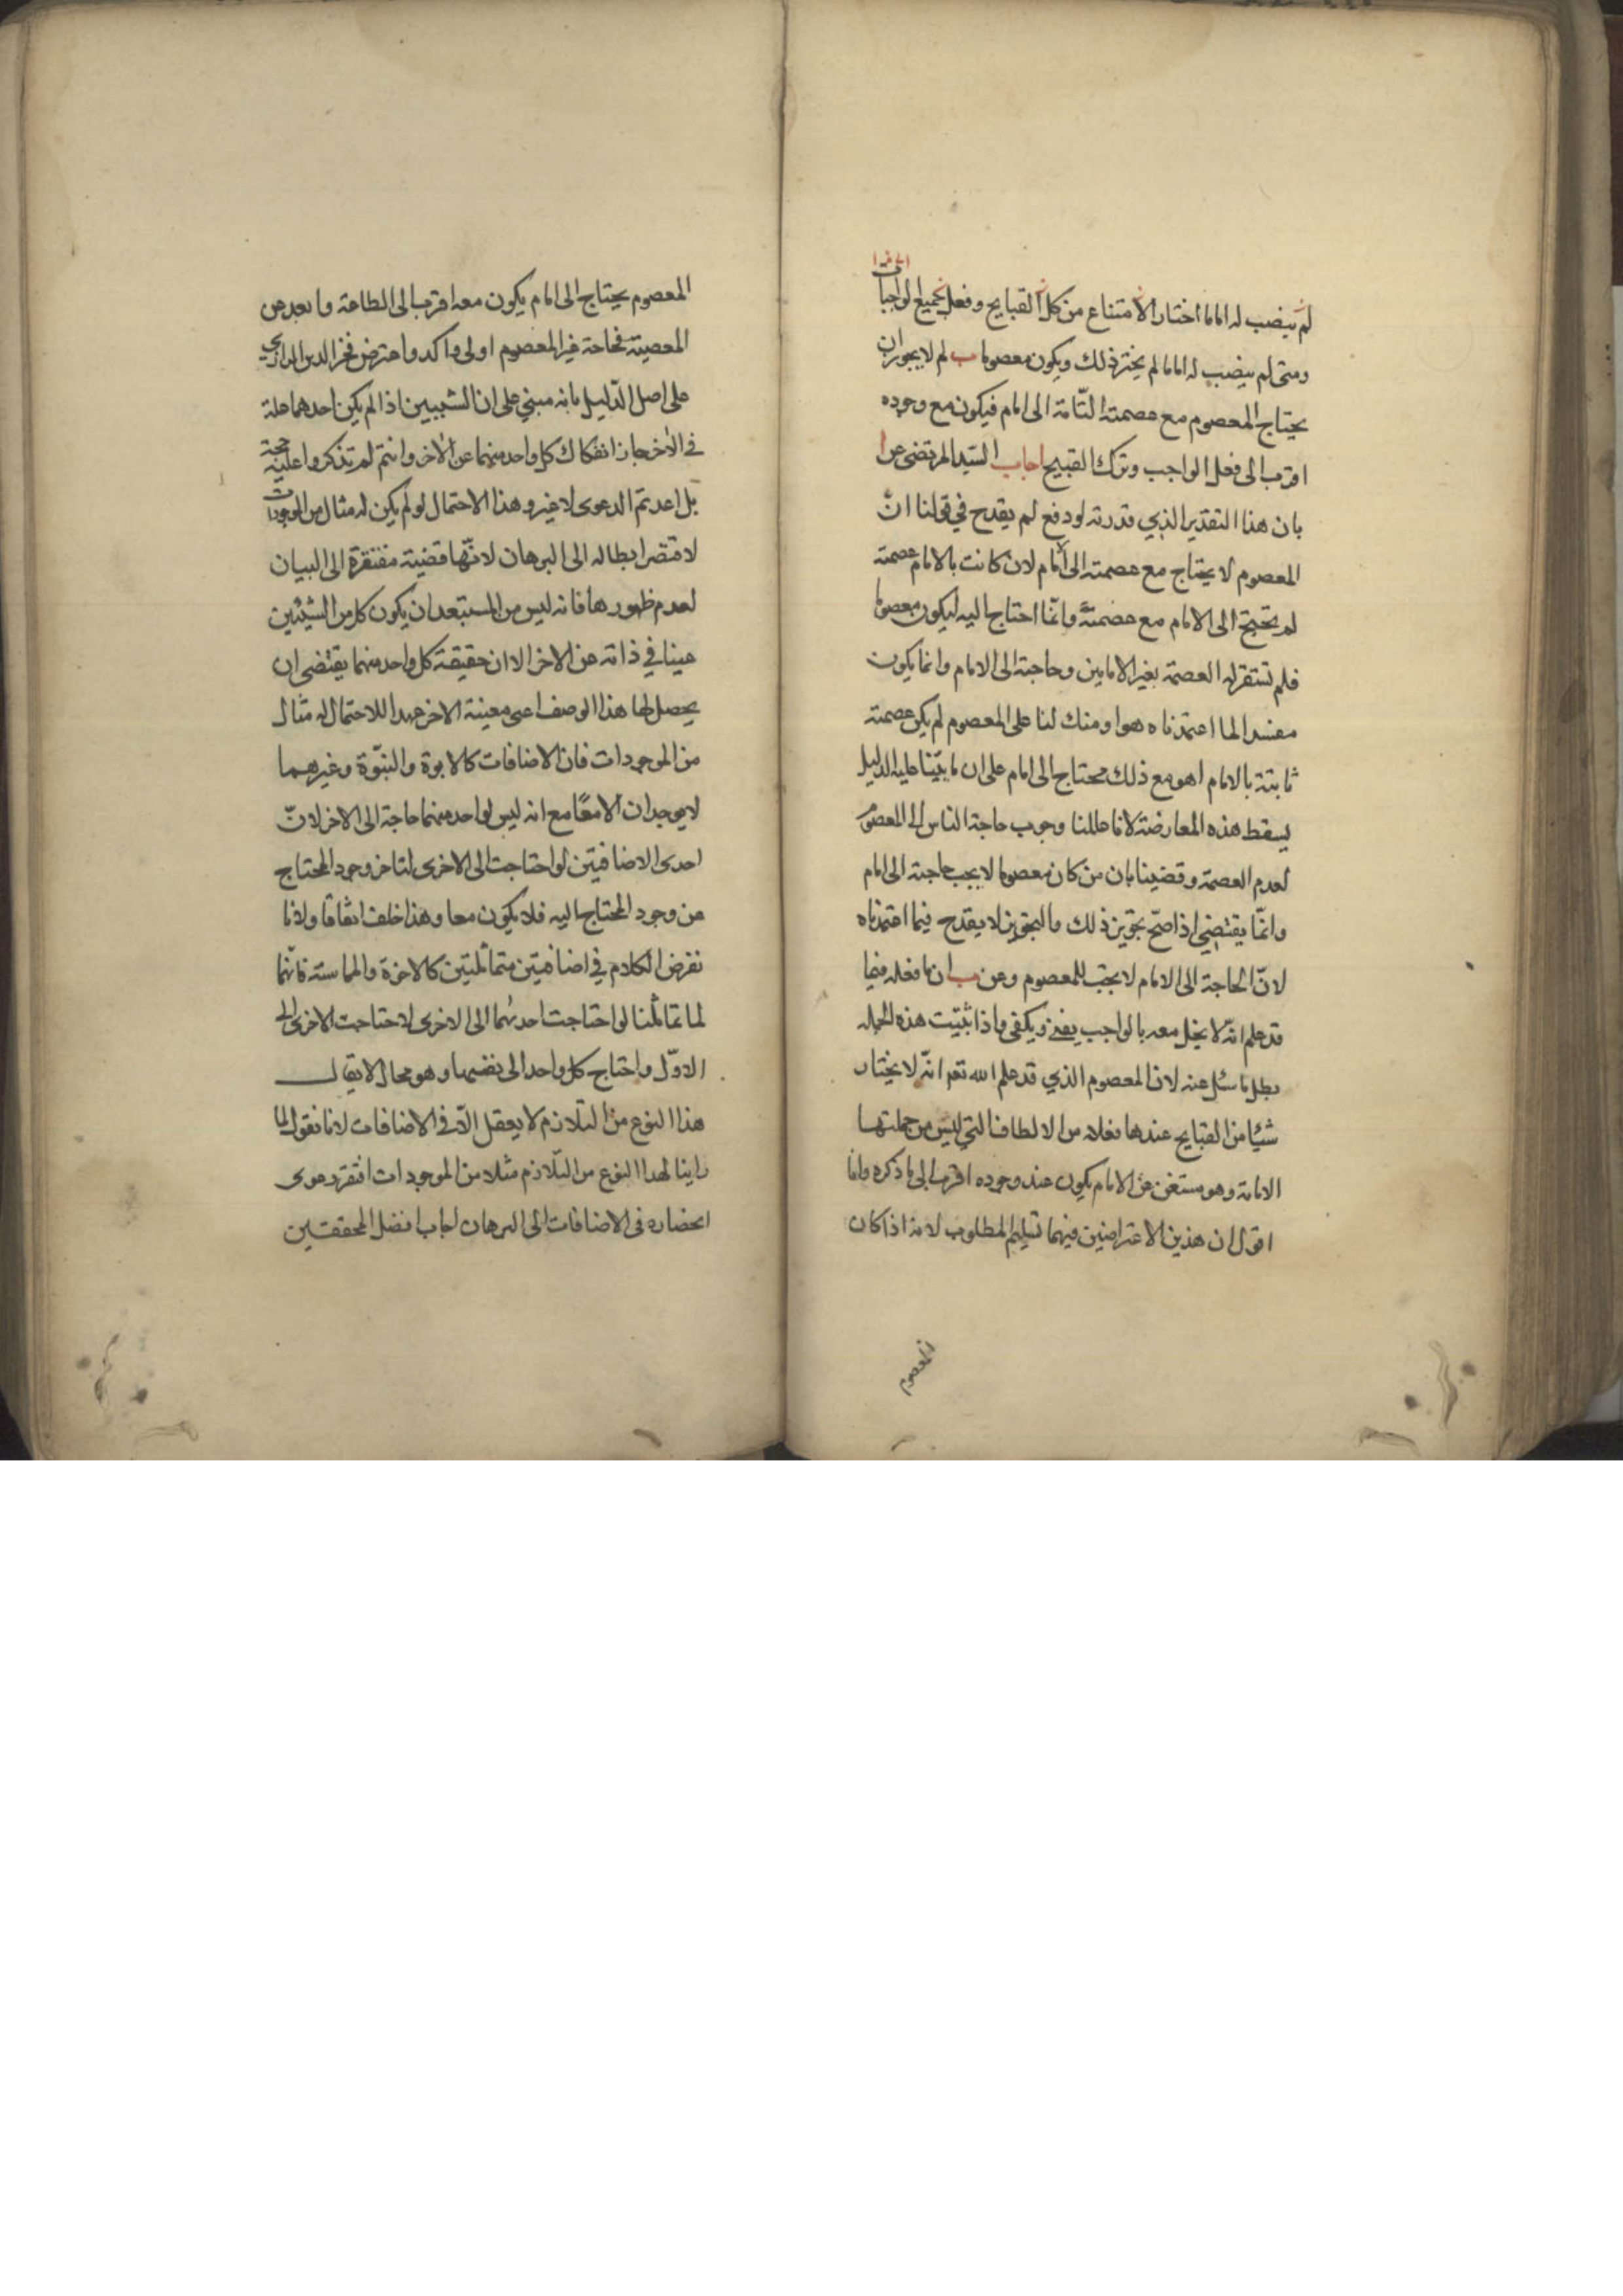 لم ينصب له اماما اختار الامتناع من كل القبايح وفعل جميع الواجبات
ومتى لم ينصب له اماما لم يختر ذلك ويكون معصوما ب لم لا يجوز ان
يحتاج المعصوم مع عصمته التامة الى امام فيكون مع وجوده
اقرب الى فعل الواجب وترك القبيح اجاب السيد المرتضى عن ا
بان هذا التقدير الذي قدرته لو دفع لم يقدح في قولنا انّ
المعصوم لا يحتاج مع عصمته الى امام لان كانت بالامام عصمته
لم يحتج الى الامام مع عصمته وانّما احتاج اليه ليكون معصوما
فلم تستقر له العصمة بغير الامامين وحاجته الى الامام وانما يكون
مفسدا لما اعتمدناه هوا ومنك لنا على المعصوم لم يكن عصمته
ثابتة بالامام اهو مع ذلك محتاج الى امام على ان ما بيّنا عليه الدليل
يسقط هذه المعارضة لانا عللنا وجوب حاجة الناس الى المعصوم
لعدم العصمة وقضينا بان من كان معصوما لا يجب حاجته الى امام
وانّما يقتضي اذا صحّ تجويز ذلك والتجويز لا يقدح فيما اعتمدناه
لانّ الحاجة الى الامام لا يجب للمعصوم وعن ب ان ما فعله فيما
قد علم انّه لا يخل معه بالواجب يغني ويكفي واذا ثبتت هذه الجملة
بطل ما سئل عنه لان المعصوم الذي قد علم الله تعم انّه لا يختار
شيئا من القبايح عندها فعلاه من الالطاف التي ليس من جملتها
الامامة وهو مستغن عن الامام يكون عند وجوده اقرب الى ما ذكره وانا
اقول ان هذين الاعتراضين فيهما تسليم المطلوب لانه اذا كان
المعصوم
المعصوم يحتاج الى امام يكون معه اقرب الى الطاعة وابعد من
المعصية فحاجة غير المعصوم اولى واكد واعترض فخر الدين الرازي
على اصل الدّليل بانه مبني على ان الشيئين اذا لم يكن احدهما علة
في الاخر جاز انفكاك كل واحد منهما عن الاخر وانتم لم تذكروا عليه حجة
بل اعدتم الدعوى لا غير وهذا الاحتمال لو لم يكن له مثال من الموجودات
لافتقر ابطاله الى البرهان لانّها قضية مفتقرة الى البيان
لعدم ظهورها فانه ليس من المستبعد ان يكون كل من الشيئين
غنيا في ذاته عن الاخر الا ان حقيقة كل واحد منهما يقتضي ان
يحصل لها هذا الوصف اعني معينة الاخر وهذا الاحتمال له مثال
من الموجودات فان الاضافات كالابوة والبنوّة وغيرهما
لا يوجدان الا معًا مع انه ليس لواحد منهما حاجة الى الاخر لانّ
احدى الاضافتين لو احتاجت الى الاخرى لتاخر وجود المحتاج
عن وجود المحتاج اليه فلا يكون معا وهذا خلف اتفاقا ولانا
نفرض الكلام في اضافتين متماثلتين كالاخوة والمماسة فانّهما
لما تماثلتا لو احتاجت احدهما الى الاخرى لاحتاجت الاخرى الى
الاوّل واحتاج كل واحد الى نفسها وهو محال لا يقال
هذا النوع من التلازم لا يعقل الا في الاضافات لانا نقول لما
راينا لهذا النوع من التلازم مثلا من الموجودات افتقر دعوى
انحصاره في الاضافات الى البرهان اجاب افضل المحققين